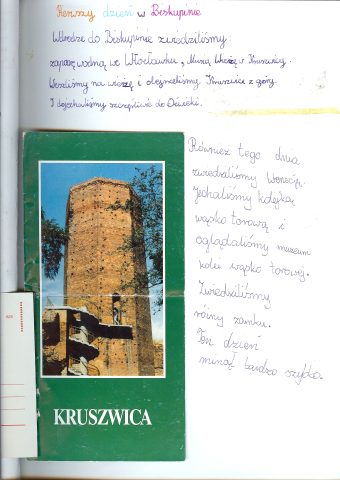 Pierwszy dzień w Biskupinie
W drodze do Biskupina zwiedziliśmy:
zaporę wodną we Włocławku, Mysią Wieżę w Kruszwicy.
Weszliśmy na wieżę i obejrzeliśmy Kruszwicę z góry.
I dojechaliśmy szczęśliwie do Ośrodka.
Również tego dnia
zwiedzaliśmy Wenecję.
Jechaliśmy kolejką
wąsko torową i
oglądaliśmy muzeum
kolei wąsko torowej.
Zwiedziliśmy
ruiny zamku.
Ten dzień
minął bardzo szybko.
KRUSZWICA